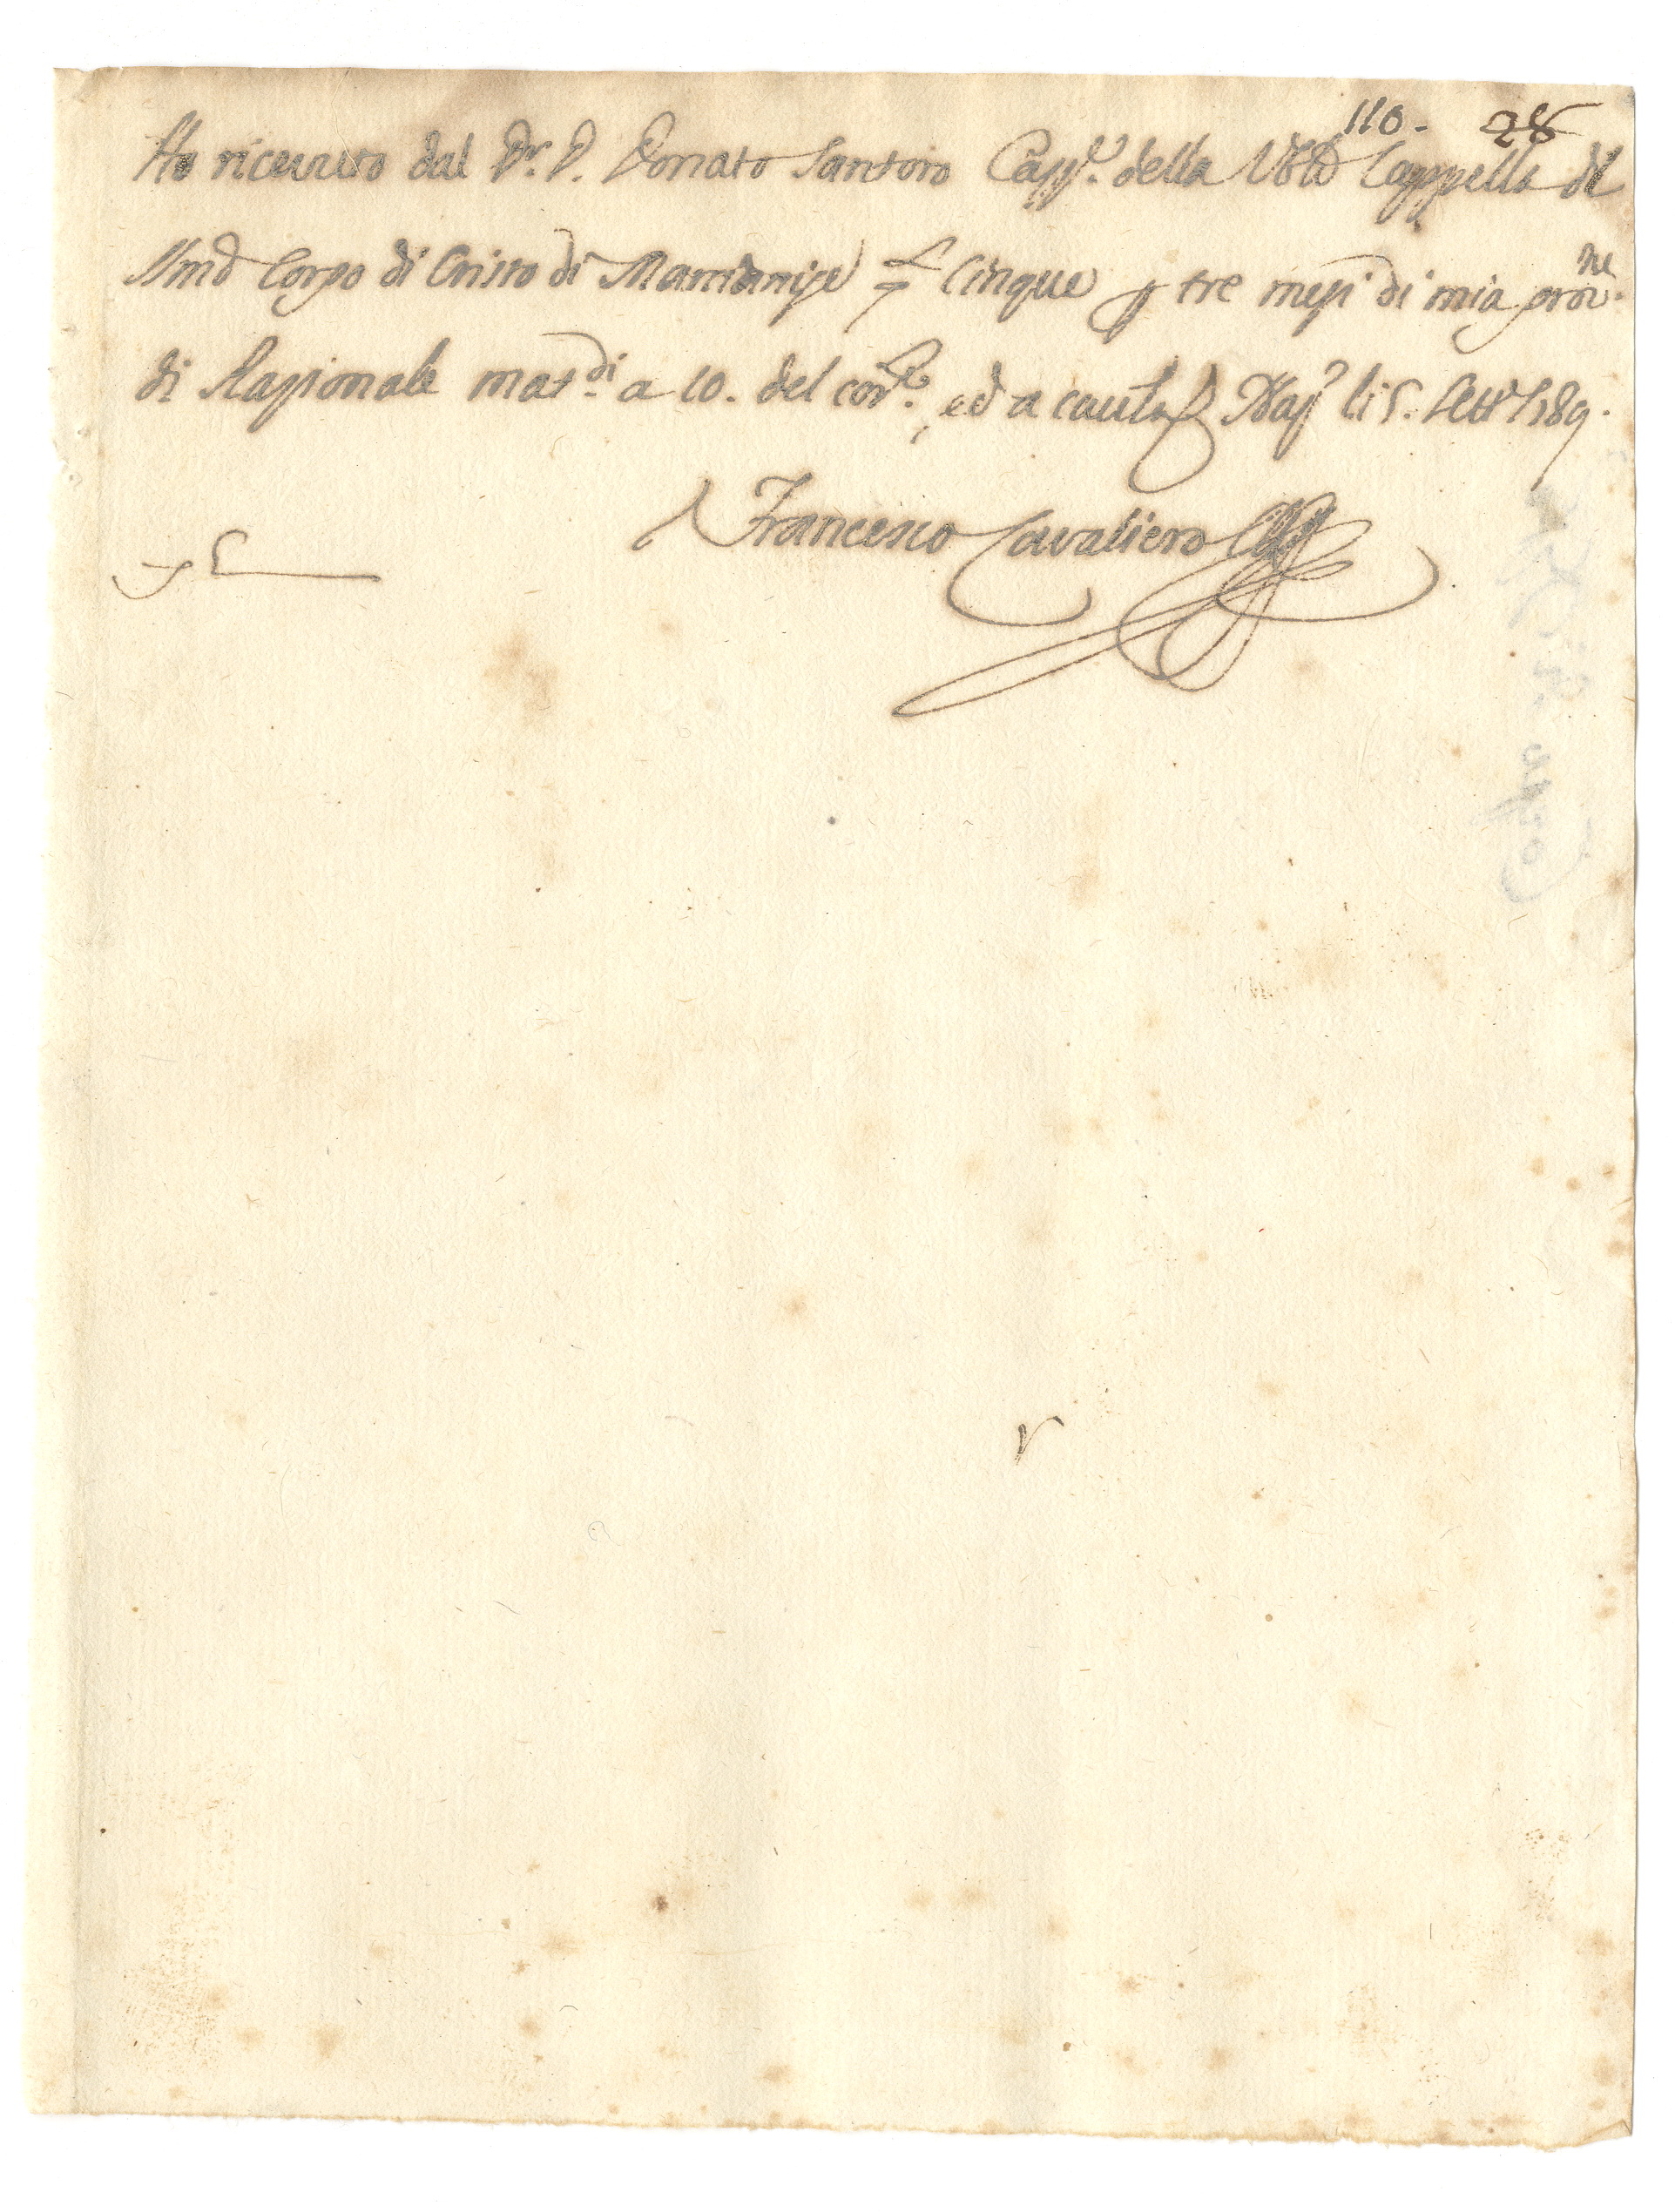 110. 28
Ho ricevuto dal Dr. D. Donato Santoro Capp.e della Cappella del
SSmo Corpo di Cristo di Marcianise Cinque p tre mesi di mia prov.ne
di Razionale mat.di a 10. del cor.te, ed a cautela Nap. li 5. Sett.e 1789.
Francesco Cavaliero
5